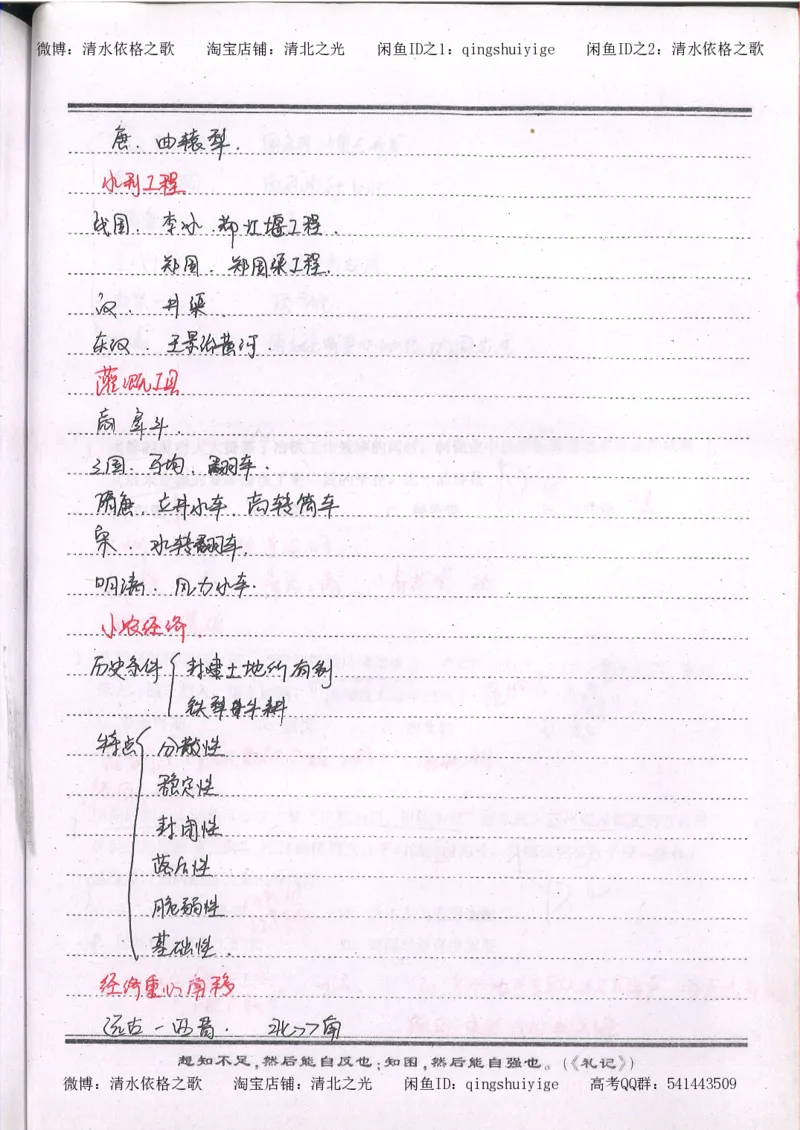 微博：清水依格之歌 淘宝店铺：清北之光 闲鱼ID之1：qingshuiyige 闲鱼ID之2：清水依格之歌
唐．曲辕犁．
水利工程．
战国．李冰．都江堰工程．
郑国．郑国渠工程．
汉．井渠．
东汉．王景治黄河．
灌溉工具
商 戽斗．
三国．马钧．翻车．
隋唐．立井水车．高转筒车
宋．水转翻车．
明清．风力水车．
小农经济．
历史条件 封建土地所有制
铁犁牛耕
特点 分散性
稳定性
封闭性
落后性
脆弱性
基础性．
经济重心南移
远古－西晋．北>>南
是故学然后知不足，然后能自反也；知困，然后能自强也。（《礼记》）
微博：清水依格之歌 淘宝店铺：清北之光 闲鱼ID：qingshuiyige 高考QQ群：541443509